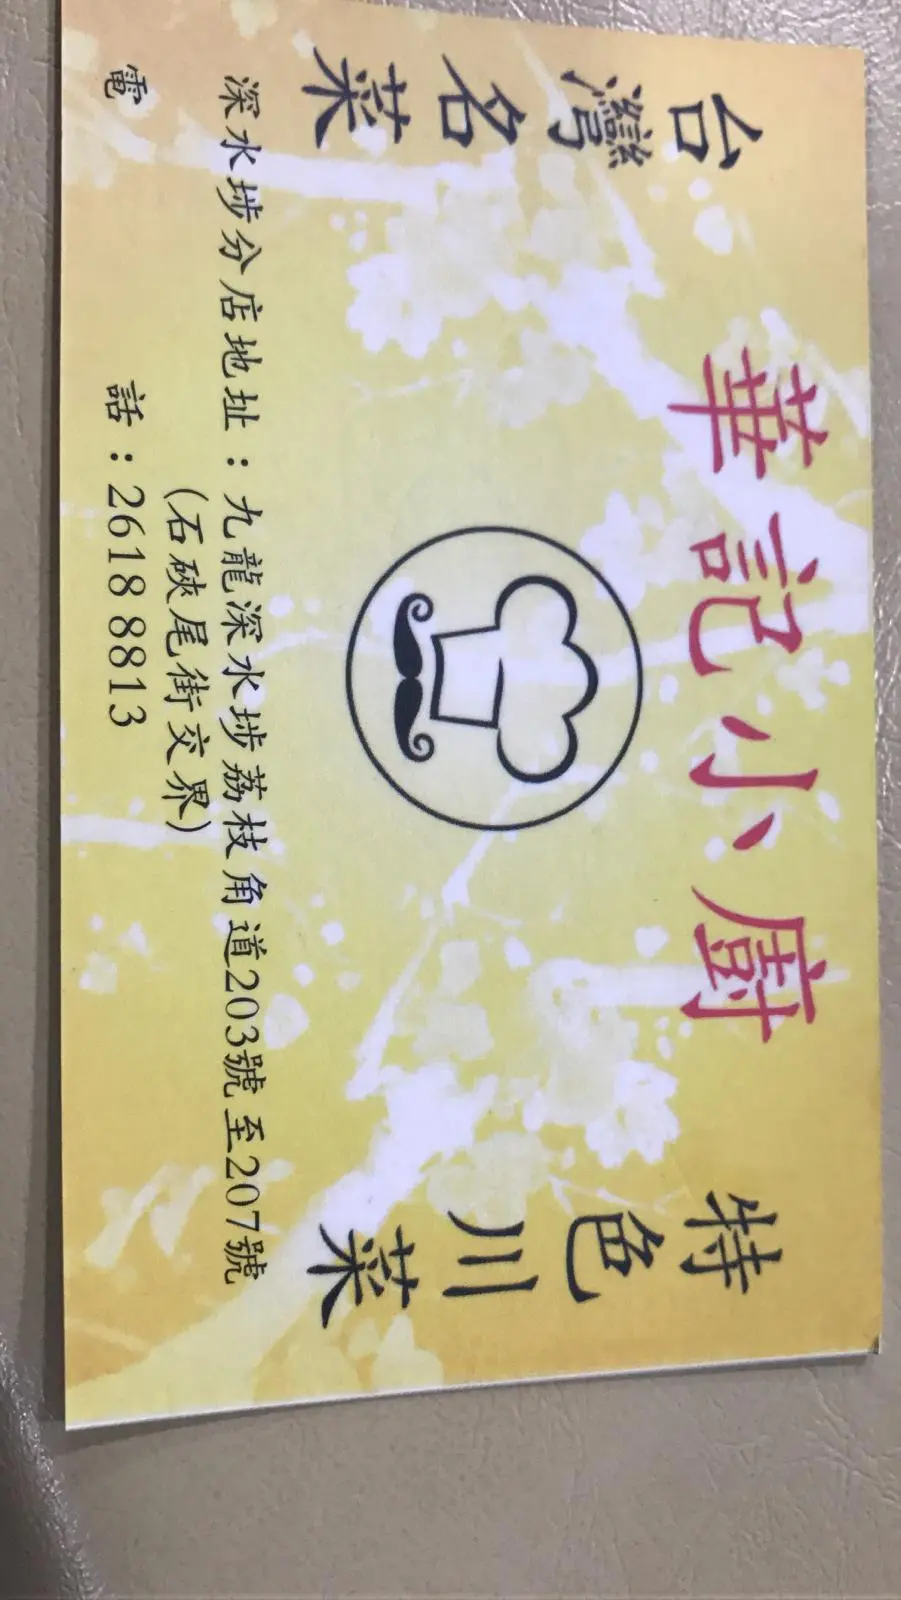 華記小廚
台灣名菜
特色川菜
深水埗分店地址：九龍深水埗荔枝角道203號至207號
(石硤尾街交界)
電話：2618 8813